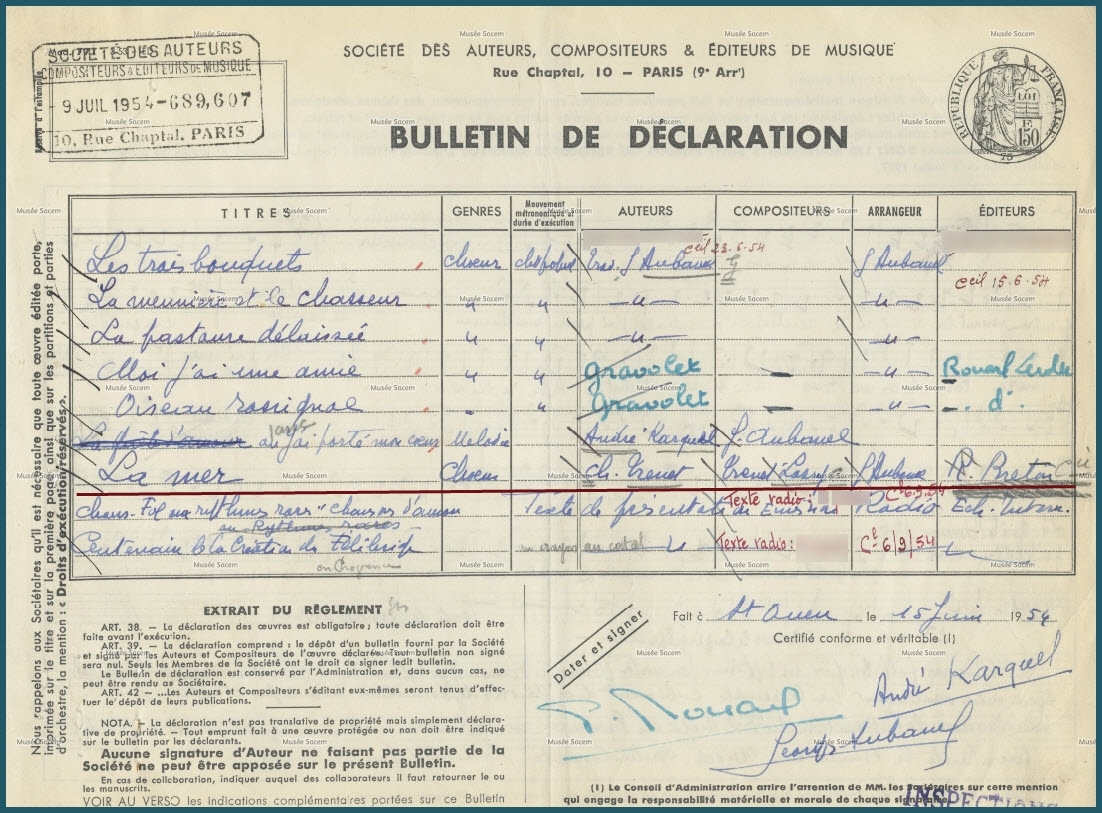 SOCIÉTÉ DES AUTEURS
COMPOSITEURS & EDITEURS DE MUSIQUE
9 JUIL 1954 - 689,607
10, Rue Chaptal, PARIS
SOCIÉTÉ DES AUTEURS, COMPOSITEURS & ÉDITEURS DE MUSIQUE
Rue Chaptal, 10 — PARIS (9e Arrt)
BULLETIN DE DÉCLARATION
RÉPUBLIQUE FRANÇAISE
LOI
150
75
Musée Sacem
Nous rappelons aux Sociétaires qu'il est nécessaire que toute œuvre éditée porte,
imprimée sur le titre et sur la première page ainsi que sur les partitions et parties
d'orchestre, la mention : « Droits d'exécution réservés ».
TITRES GENRES Mouvement métronomique et durée d'exécution AUTEURS COMPOSITEURS ARRANGEUR ÉDITEURS
Les trois bouquets chœur G Aubanel ceil 23.6.54 G Aubanel
La meunière et le chasseur " " —"— —"— ceil 15.6.54
La pastoure délaissée " " —"— —"—
Moi j'ai une amie " " Gravolet — —"— Rouart Lerolle
Oiseau rossignol " " Gravolet — —"— — d°
au j'ai porté mon cœur Melodie André Karquel G. Aubanel
La mer Chœur Ch. Trenet Trenet Lasry G Aubanel R. Breton
Texte de présentation Emission Radio
Texte radio : Ce 6.9.54
"Chansons d'amour
ou Rythmes rares
Centenaire de la Création du Félibrige un crayon au catal " Texte radio : Ce 6/9/54
EXTRAIT DU RÈGLEMENT
ART. 38. — La déclaration des œuvres est obligatoire ; toute déclaration doit être
faite avant l'exécution.
ART. 39. — La déclaration comprend : le dépôt d'un bulletin fourni par la Société
et signé par les Auteurs et Compositeurs de l'œuvre déclarée. Tout bulletin non signé
sera nul. Seuls les Membres de la Société ont le droit de signer ledit bulletin.
Le Bulletin de déclaration est conservé par l'Administration et, dans aucun cas, ne
peut être rendu au Sociétaire.
ART. 42 — ...Les Auteurs et Compositeurs s'éditant eux-mêmes seront tenus d'effec-
tuer le dépôt de leurs publications.
NOTA. — La déclaration n'est pas translative de propriété mais simplement déclara-
tive de propriété. — Tout emprunt fait à une œuvre protégée ou non doit être indiqué
sur le bulletin par les déclarants.
Aucune signature d'Auteur ne faisant pas partie de la
Société ne peut être apposée sur le présent Bulletin.
En cas de collaboration, indiquer auquel des collaborateurs il faut retourner le ou
les manuscrits.
VOIR AU VERSO les indications complémentaires portées sur ce Bulletin
Dater et signer
Fait à St Ouen le 15 Juin 1954
Certifié conforme et véritable (1)
P. Rouart
André Karquel
Georges Aubanel
(1) Le Conseil d'Administration attire l'attention de MM. les Sociétaires sur cette mention
qui engage la responsabilité matérielle et morale de chaque signataire.
INSPECTIONS